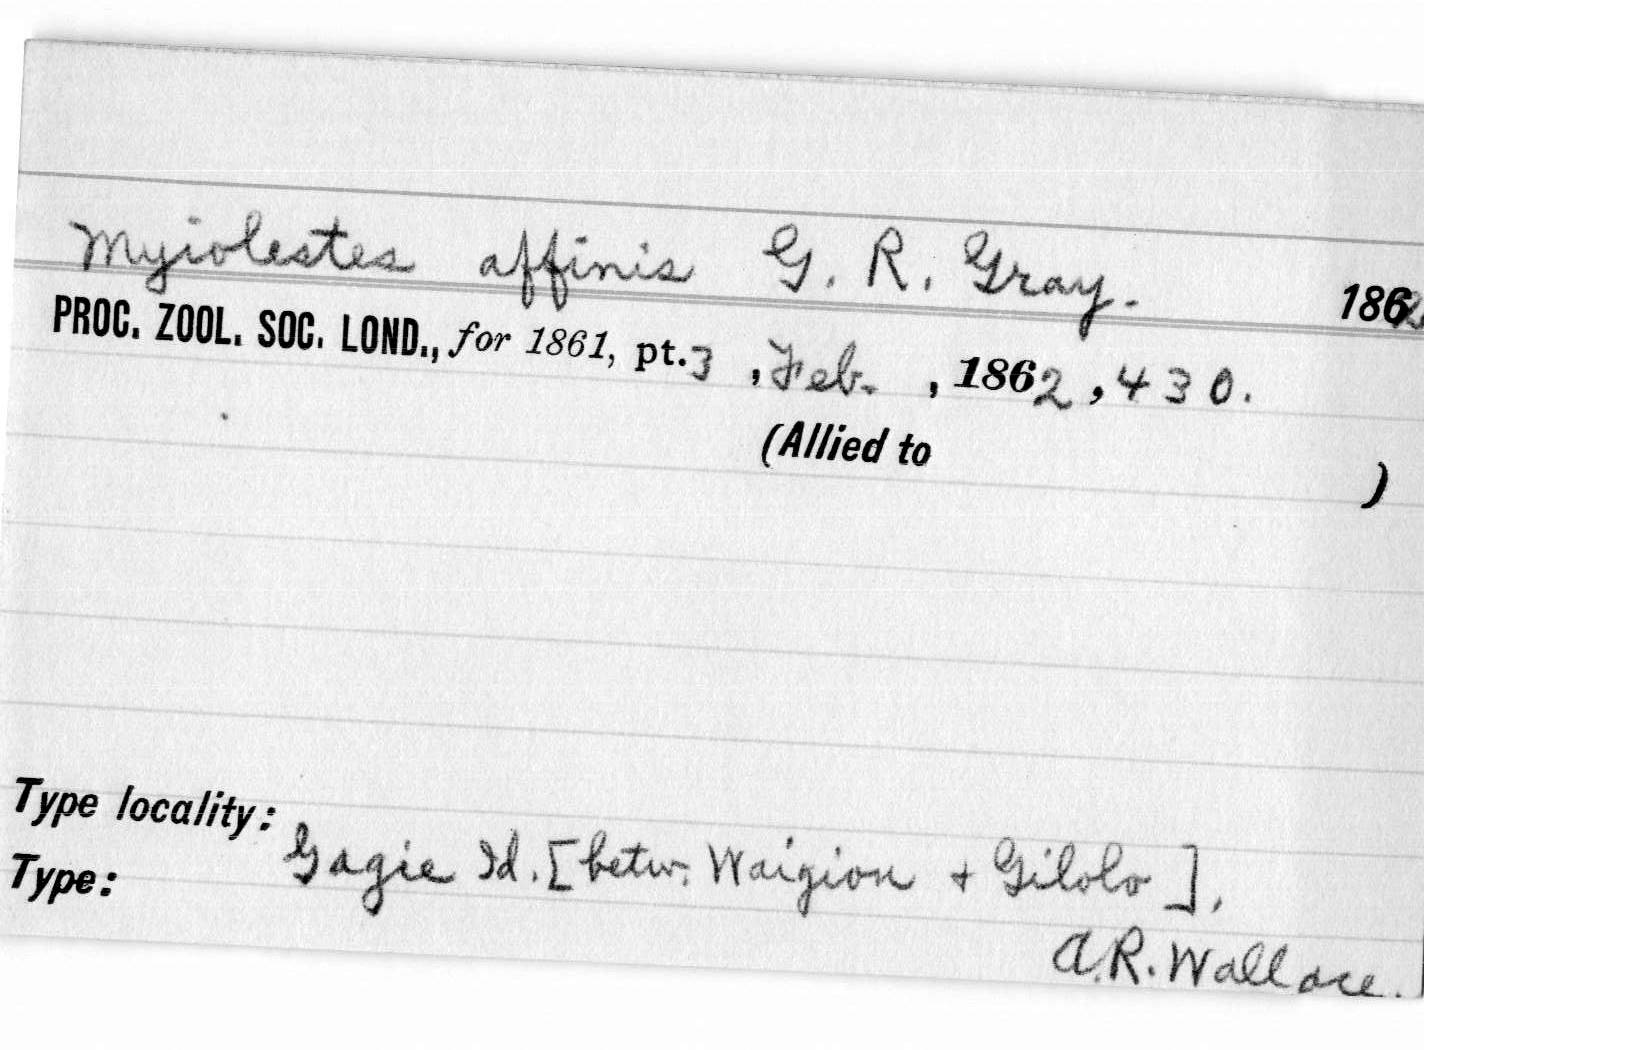 Myiolestes affinis G. R. Gray. 1862
PROC. ZOOL. SOC. LOND., for 1861, pt. 3, Feb. , 1862, 430.
(Allied to )
Type locality: Gagie Id. [betw. Waigiou + Gilolo],
Type:
A.R. Wallace.